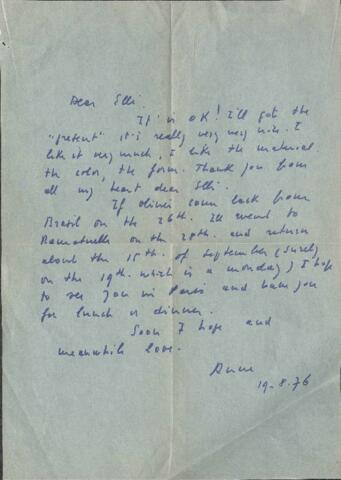 Dear Elli.
It's OK! I'll got the
"present" it's really very very nice. I
like it very much, I like the material.
the color, the form. Thank you from
all my heart dear Elli.
If olivier come back from
Brazil on the 26th. I'll went to
Ramatuelle on the 28th. and return
about the 15th. of september (surely
on the 19th. which is a monday) I hope
to see you in Paris and have you
for lunch or dinner.
Soon I hope and
meanwhile love.
Anne
19-8.76